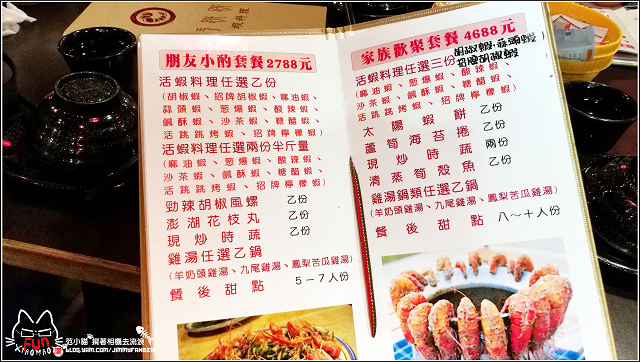 蝦料理
朋友小酌套餐2788元
活蝦料理任選乙份
(胡椒蝦、招牌胡椒蝦、麻油蝦、
蒜頭蝦、蔥爆蝦、酸辣蝦、
鹹酥蝦、沙茶蝦、糖醋蝦、
活跳跳烤蝦、招牌檸檬蝦)
活蝦料理任選兩份半斤量
(麻油蝦、蔥爆蝦、酸辣蝦、
沙茶蝦、鹹酥蝦、糖醋蝦、
活跳跳烤蝦、招牌檸檬蝦)
勁辣胡椒風螺 乙份
澎湖花枝丸 乙份
現炒時蔬 乙份
雞湯任選乙鍋
(羊奶頭雞湯、九尾雞湯、鳳梨苦瓜雞湯)
餐後甜點 5－7人份
家族歡聚套餐 4688元
胡椒蝦、蒜頭蝦
招牌胡椒蝦
活蝦料理任選三份
(麻油蝦、蔥爆蝦、酸辣蝦、
沙茶蝦、鹹酥蝦、糖醋蝦、
活跳跳烤蝦、招牌檸檬蝦)
太陽蝦餅 乙份
蘆筍海苔捲 乙份
現炒時蔬 兩份
清蒸筍殼魚 乙份
雞湯鍋類任選乙鍋
(羊奶頭雞湯、九尾雞湯、鳳梨苦瓜雞湯)
餐後甜點 八～十人份
FUN